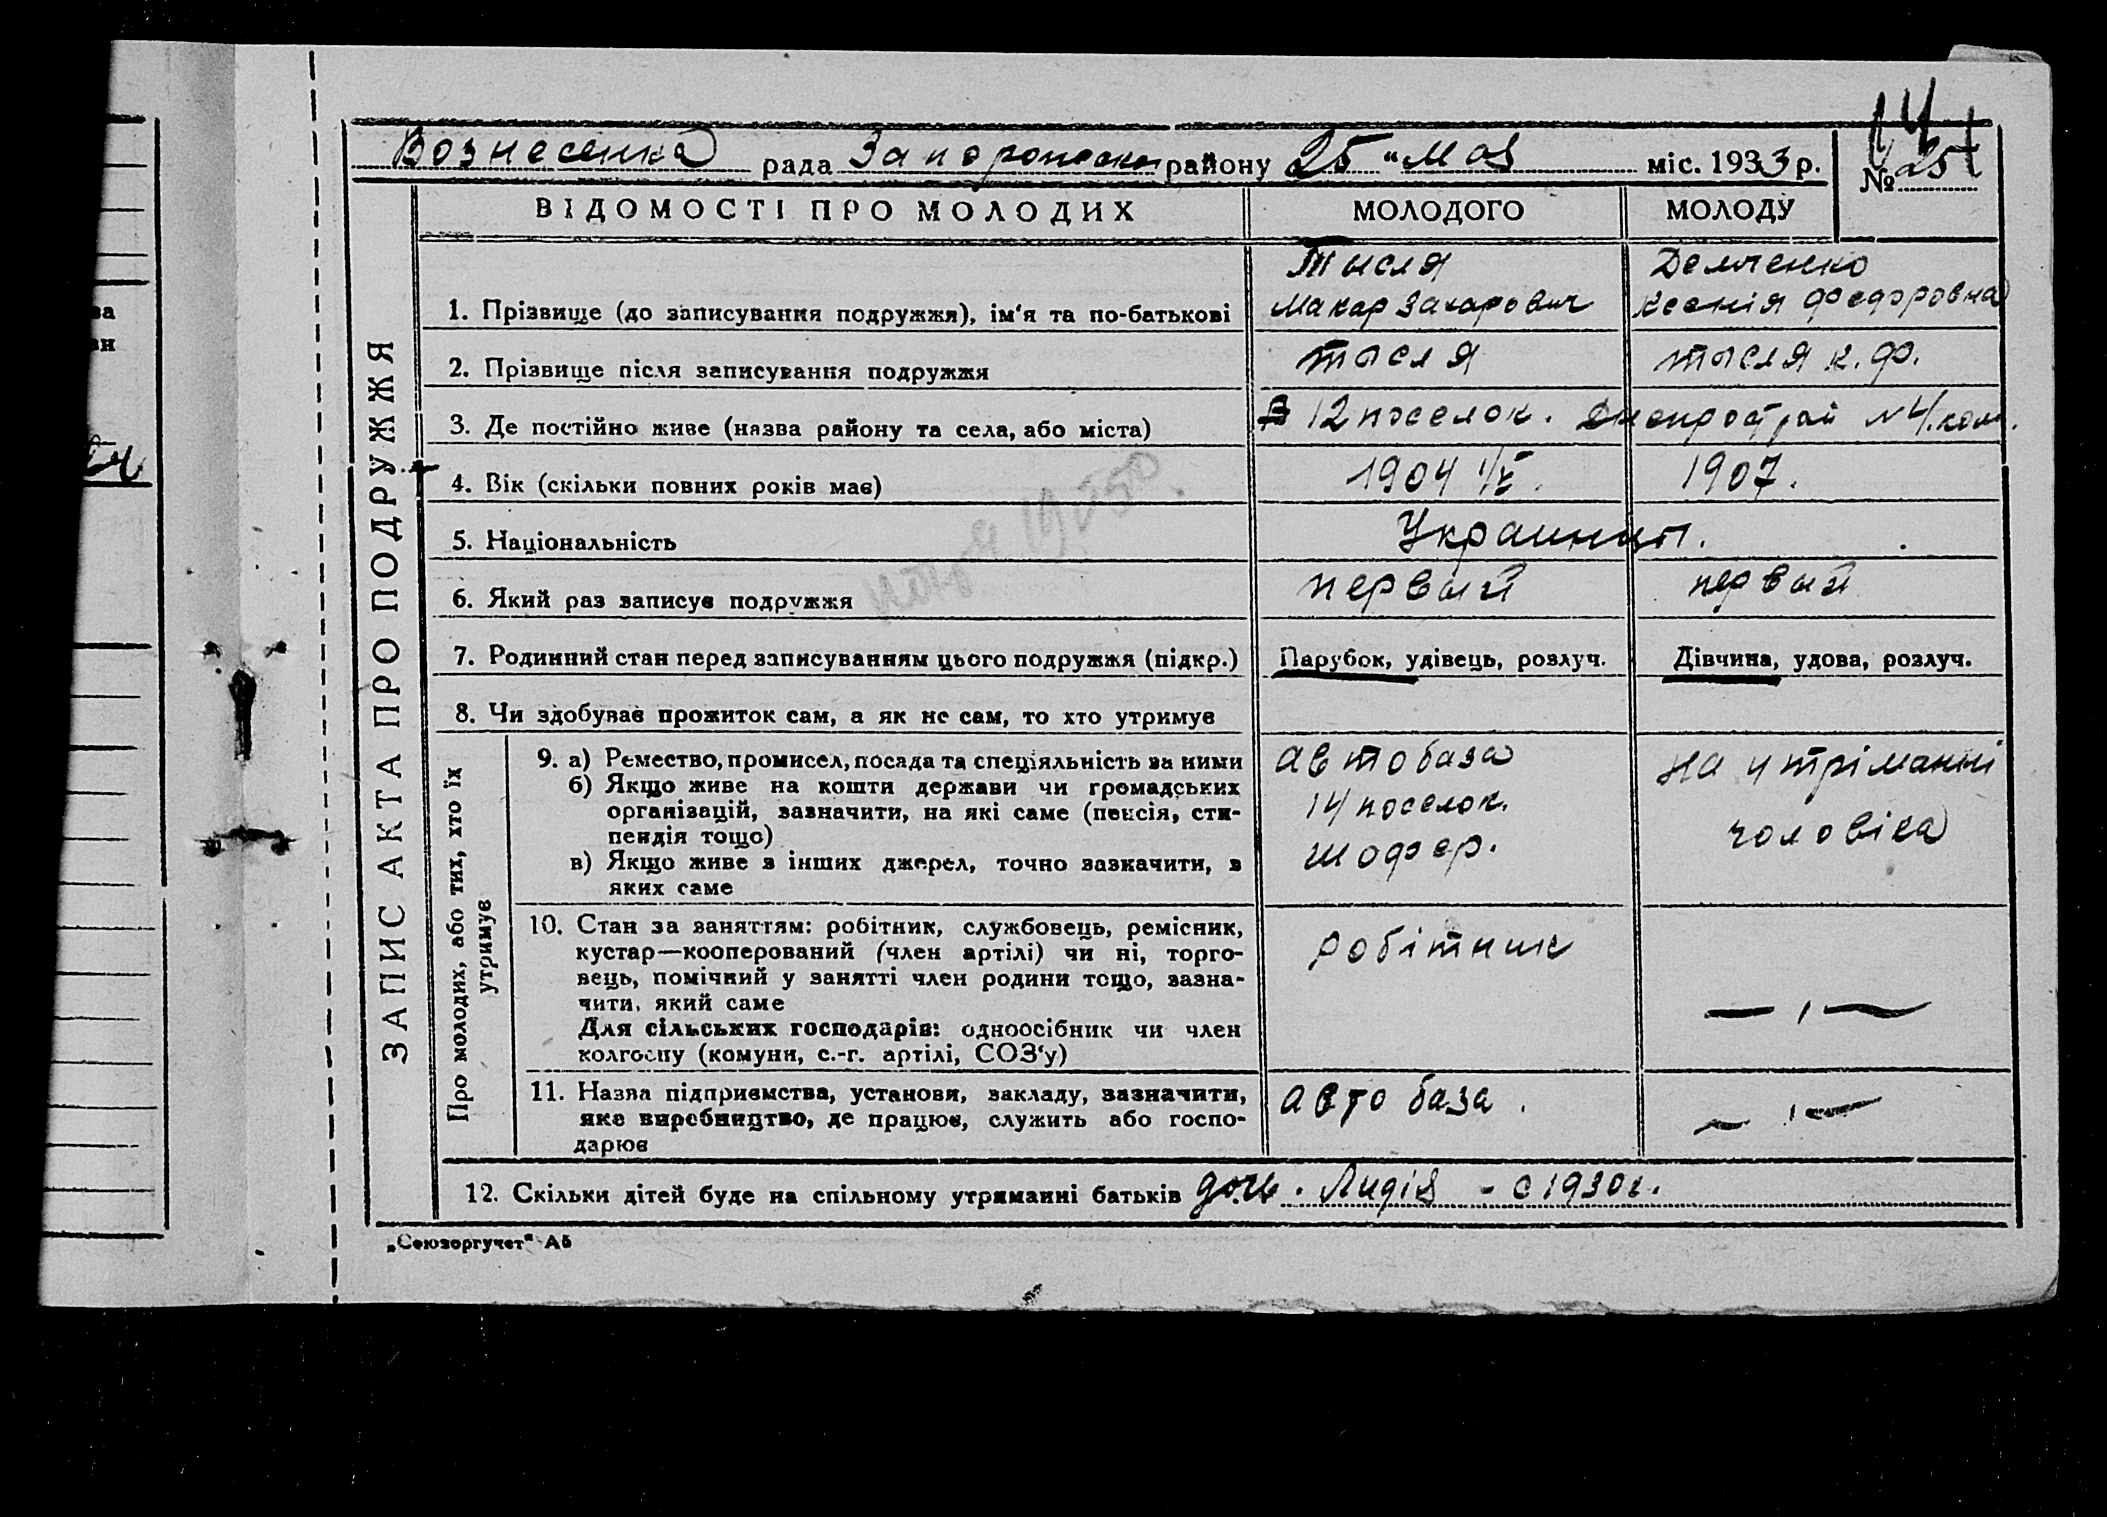 Вознесенка рада Запорожский району 25 "Мая міс. 1933 р.
№ 25
ВІДОМОСТІ ПРО МОЛОДИХ МОЛОДОГО МОЛОДУ
ЗАПИС АКТА ПРО ПОДРУЖЖЯ
Тысля Демченко
1. Прізвище (до записування подружжя), ім'я та по-батькові Макар Захарович Ксенія Федоровна
2. Прізвище після записування подружжя Тысля Тысля К. Ф.
3. Де постійно живе (назва району та села, або міста) 12 поселок. Днепрострой N4
4. Вік (скільки повних років має) 1904 1907.
5. Національність Украинцы.
6. Який раз записує подружжя первый первый
7. Родинний стан перед записуванням цього подружжя (підкр.) Парубок, удівець, розлуч. Дівчина, удова, розлуч.
8. Чи здобував прожиток сам, а як не сам, то хто утримує
Про молодих, або тих, хто їх утримує
9. а) Ремество, промисел, посада та спеціяльність за ними автобаза на утріманні
б) Якщо живе на кошти держави чи громадських 14 поселок.
організацій, зазначити, на які саме (пенсія, сти- чоловіка
пендія тощо) шофер.
в) Якщо живе з інших джерел, точно зазначити, з
яких саме
10. Стан за заняттям: робітник, службовець, ремісник, робітник
кустар—кооперований (член артілі) чи ні, торго-
вець, помічний у занятті член родини тощо, зазна-
чити, який саме — " —
Для сільських господарів: одноосібник чи член
колгоспу (комуни, с.-г. артілі, СОЗ'у)
11. Назва підприємства, установи, закладу, зазначити, авто база.
яке виробництво, де працює, служить або госпо- — " —
дарює
12. Скільки дітей буде на спільному утриманні батьків дочь. Лидія - с 1930 г.
„Союзоргучет" Аб